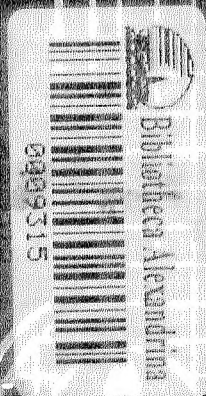 Bibliotheca Alexandrina
0009315